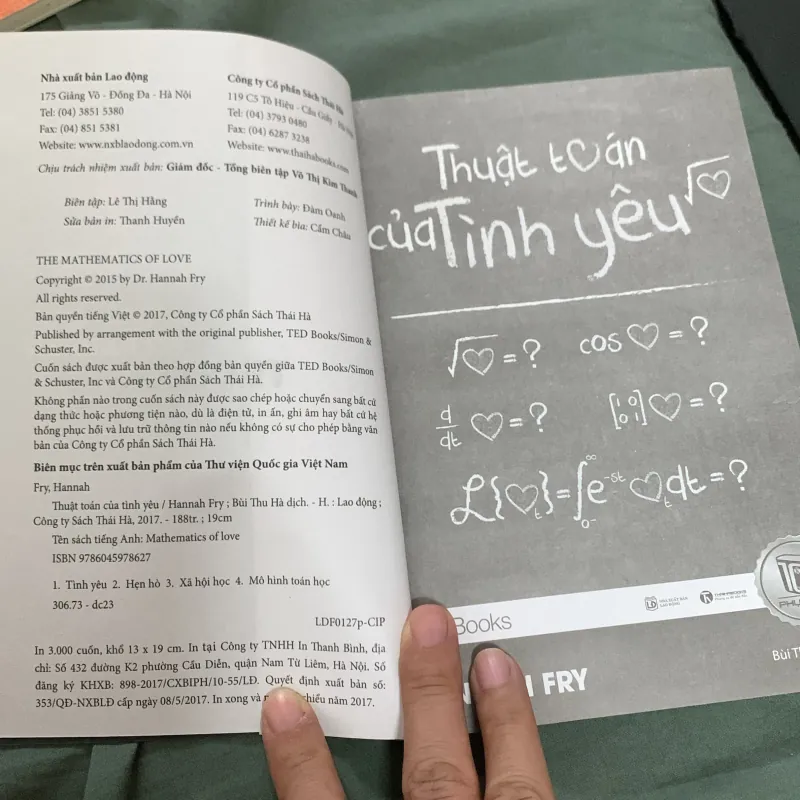 Nhà xuất bản Lao động
175 Giảng Võ - Đống Đa - Hà Nội
Tel: (04) 3851 5380
Fax: (04) 851 5381
Website: www.nxblaodong.com.vn
Công ty Cổ phần Sách Thái Hà
119 C5 Tô Hiệu - Cầu Giấy - Hà Nội
Tel: (04) 3793 0480
Fax: (04) 6287 3238
Website: www.thaihabooks.com
Chịu trách nhiệm xuất bản: Giám đốc - Tổng biên tập Võ Thị Kim Thanh
Biên tập: Lê Thị Hằng
Sửa bản in: Thanh Huyền
Trình bày: Đàm Oanh
Thiết kế bìa: Cẩm Châu
THE MATHEMATICS OF LOVE
Copyright © 2015 by Dr. Hannah Fry
All rights reserved.
Bản quyền tiếng Việt © 2017, Công ty Cổ phần Sách Thái Hà
Published by arrangement with the original publisher, TED Books/Simon &
Schuster, Inc.
Cuốn sách được xuất bản theo hợp đồng bản quyền giữa TED Books/Simon
& Schuster, Inc và Công ty Cổ phần Sách Thái Hà.
Không phần nào trong cuốn sách này được sao chép hoặc chuyển sang bất cứ
dạng thức hoặc phương tiện nào, dù là điện tử, in ấn, ghi âm hay bất cứ hệ
thống phục hồi và lưu trữ thông tin nào nếu không có sự cho phép bằng văn
bản của Công ty Cổ phần Sách Thái Hà.
Biên mục trên xuất bản phẩm của Thư viện Quốc gia Việt Nam
Fry, Hannah
Thuật toán của tình yêu / Hannah Fry ; Bùi Thu Hà dịch. - H. : Lao động ;
Công ty Sách Thái Hà, 2017. - 188tr. ; 19cm
Tên sách tiếng Anh: Mathematics of love
ISBN 9786045978627
1. Tình yêu 2. Hẹn hò 3. Xã hội học 4. Mô hình toán học
306.73 - dc23
LDF0127p-CIP
In 3.000 cuốn, khổ 13 x 19 cm. In tại Công ty TNHH In Thanh Bình, địa
chỉ: Số 432 đường K2 phường Cầu Diễn, quận Nam Từ Liêm, Hà Nội. Số
đăng ký KHXB: 898-2017/CXBIPH/10-55/LĐ. Quyết định xuất bản số:
353/QĐ-NXBLĐ cấp ngày 08/5/2017. In xong và chiểu năm 2017.
Thuật t♡án
của Tình yêu √♡
√♡ = ? cos ♡ = ?
d/dt ♡ = ? [1 0 0 1] ♡ = ?
ℒ{♡t} = ∫0-∞ e-st ♡t dt = ?
Books
FRY
Bùi T